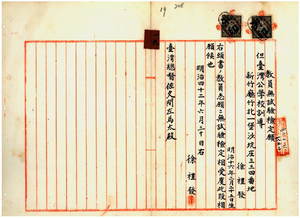 教員無試驗檢定願
但臺灣公學校訓導
新竹廳竹北一堡沙坑庄三三四番地
徐禮發
明治十六年二月二十日生
右願書ノ教員志願ニ無試驗檢定相受度此段相
願候也
明治四十二年六月三十日右
徐禮發
臺灣總督佐久間左馬太殿